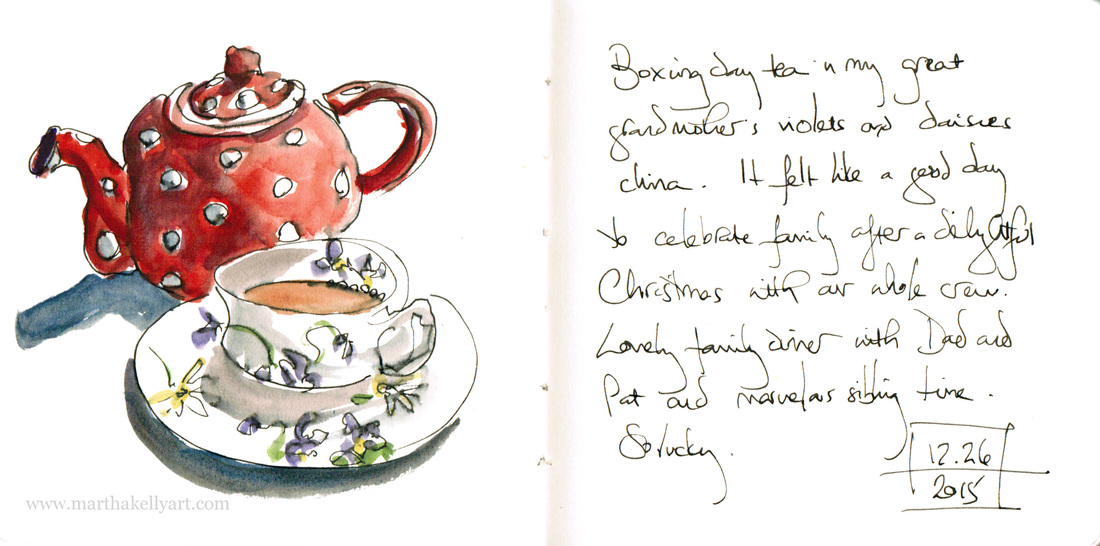 www.marthakellyart.com
Boxing day tea in my great
grandmother's violets and daisies
china. It felt like a good day
to celebrate family after a delightful
Christmas with our whole crew.
Lovely family dinner with Dad and
Pat and marvelous sibling time.
So lucky.
12.26
2015